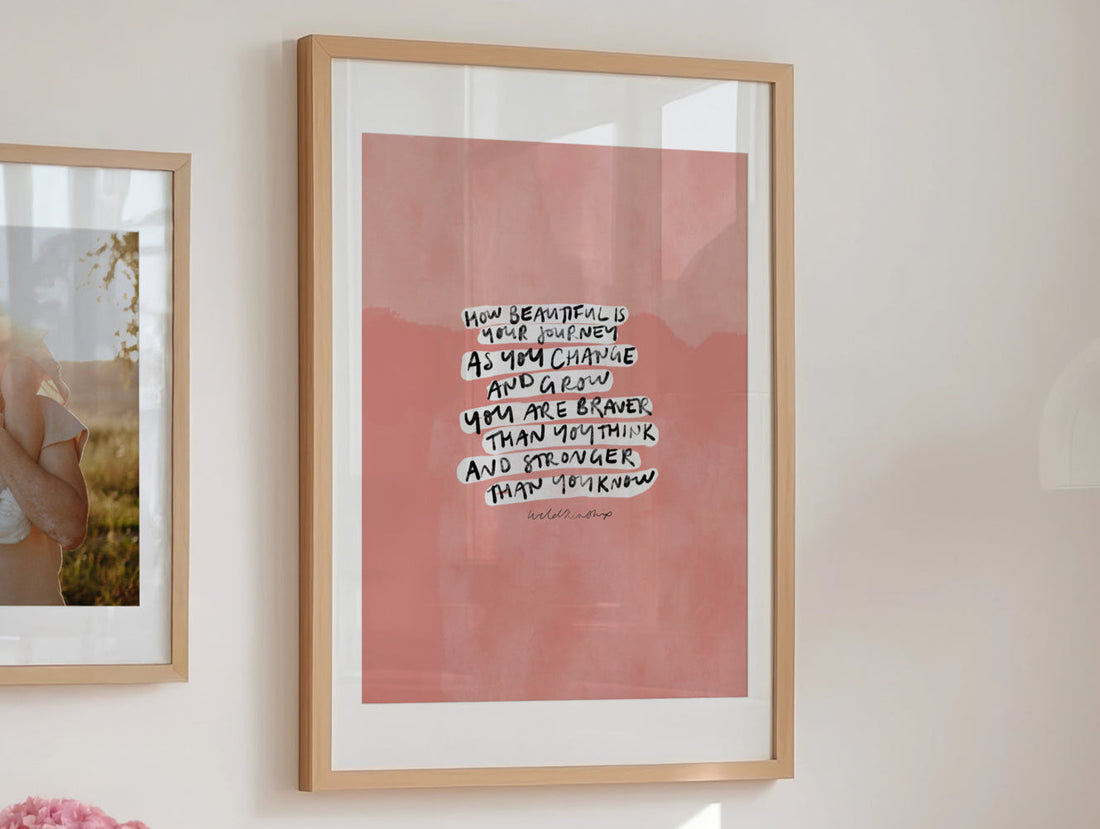 HOW BEAUTIFUL IS
YOUR JOURNEY
AS YOU CHANGE
AND GROW
YOU ARE BRAVER
THAN YOU THINK
AND STRONGER
THAN YOU KNOW
wildkinship